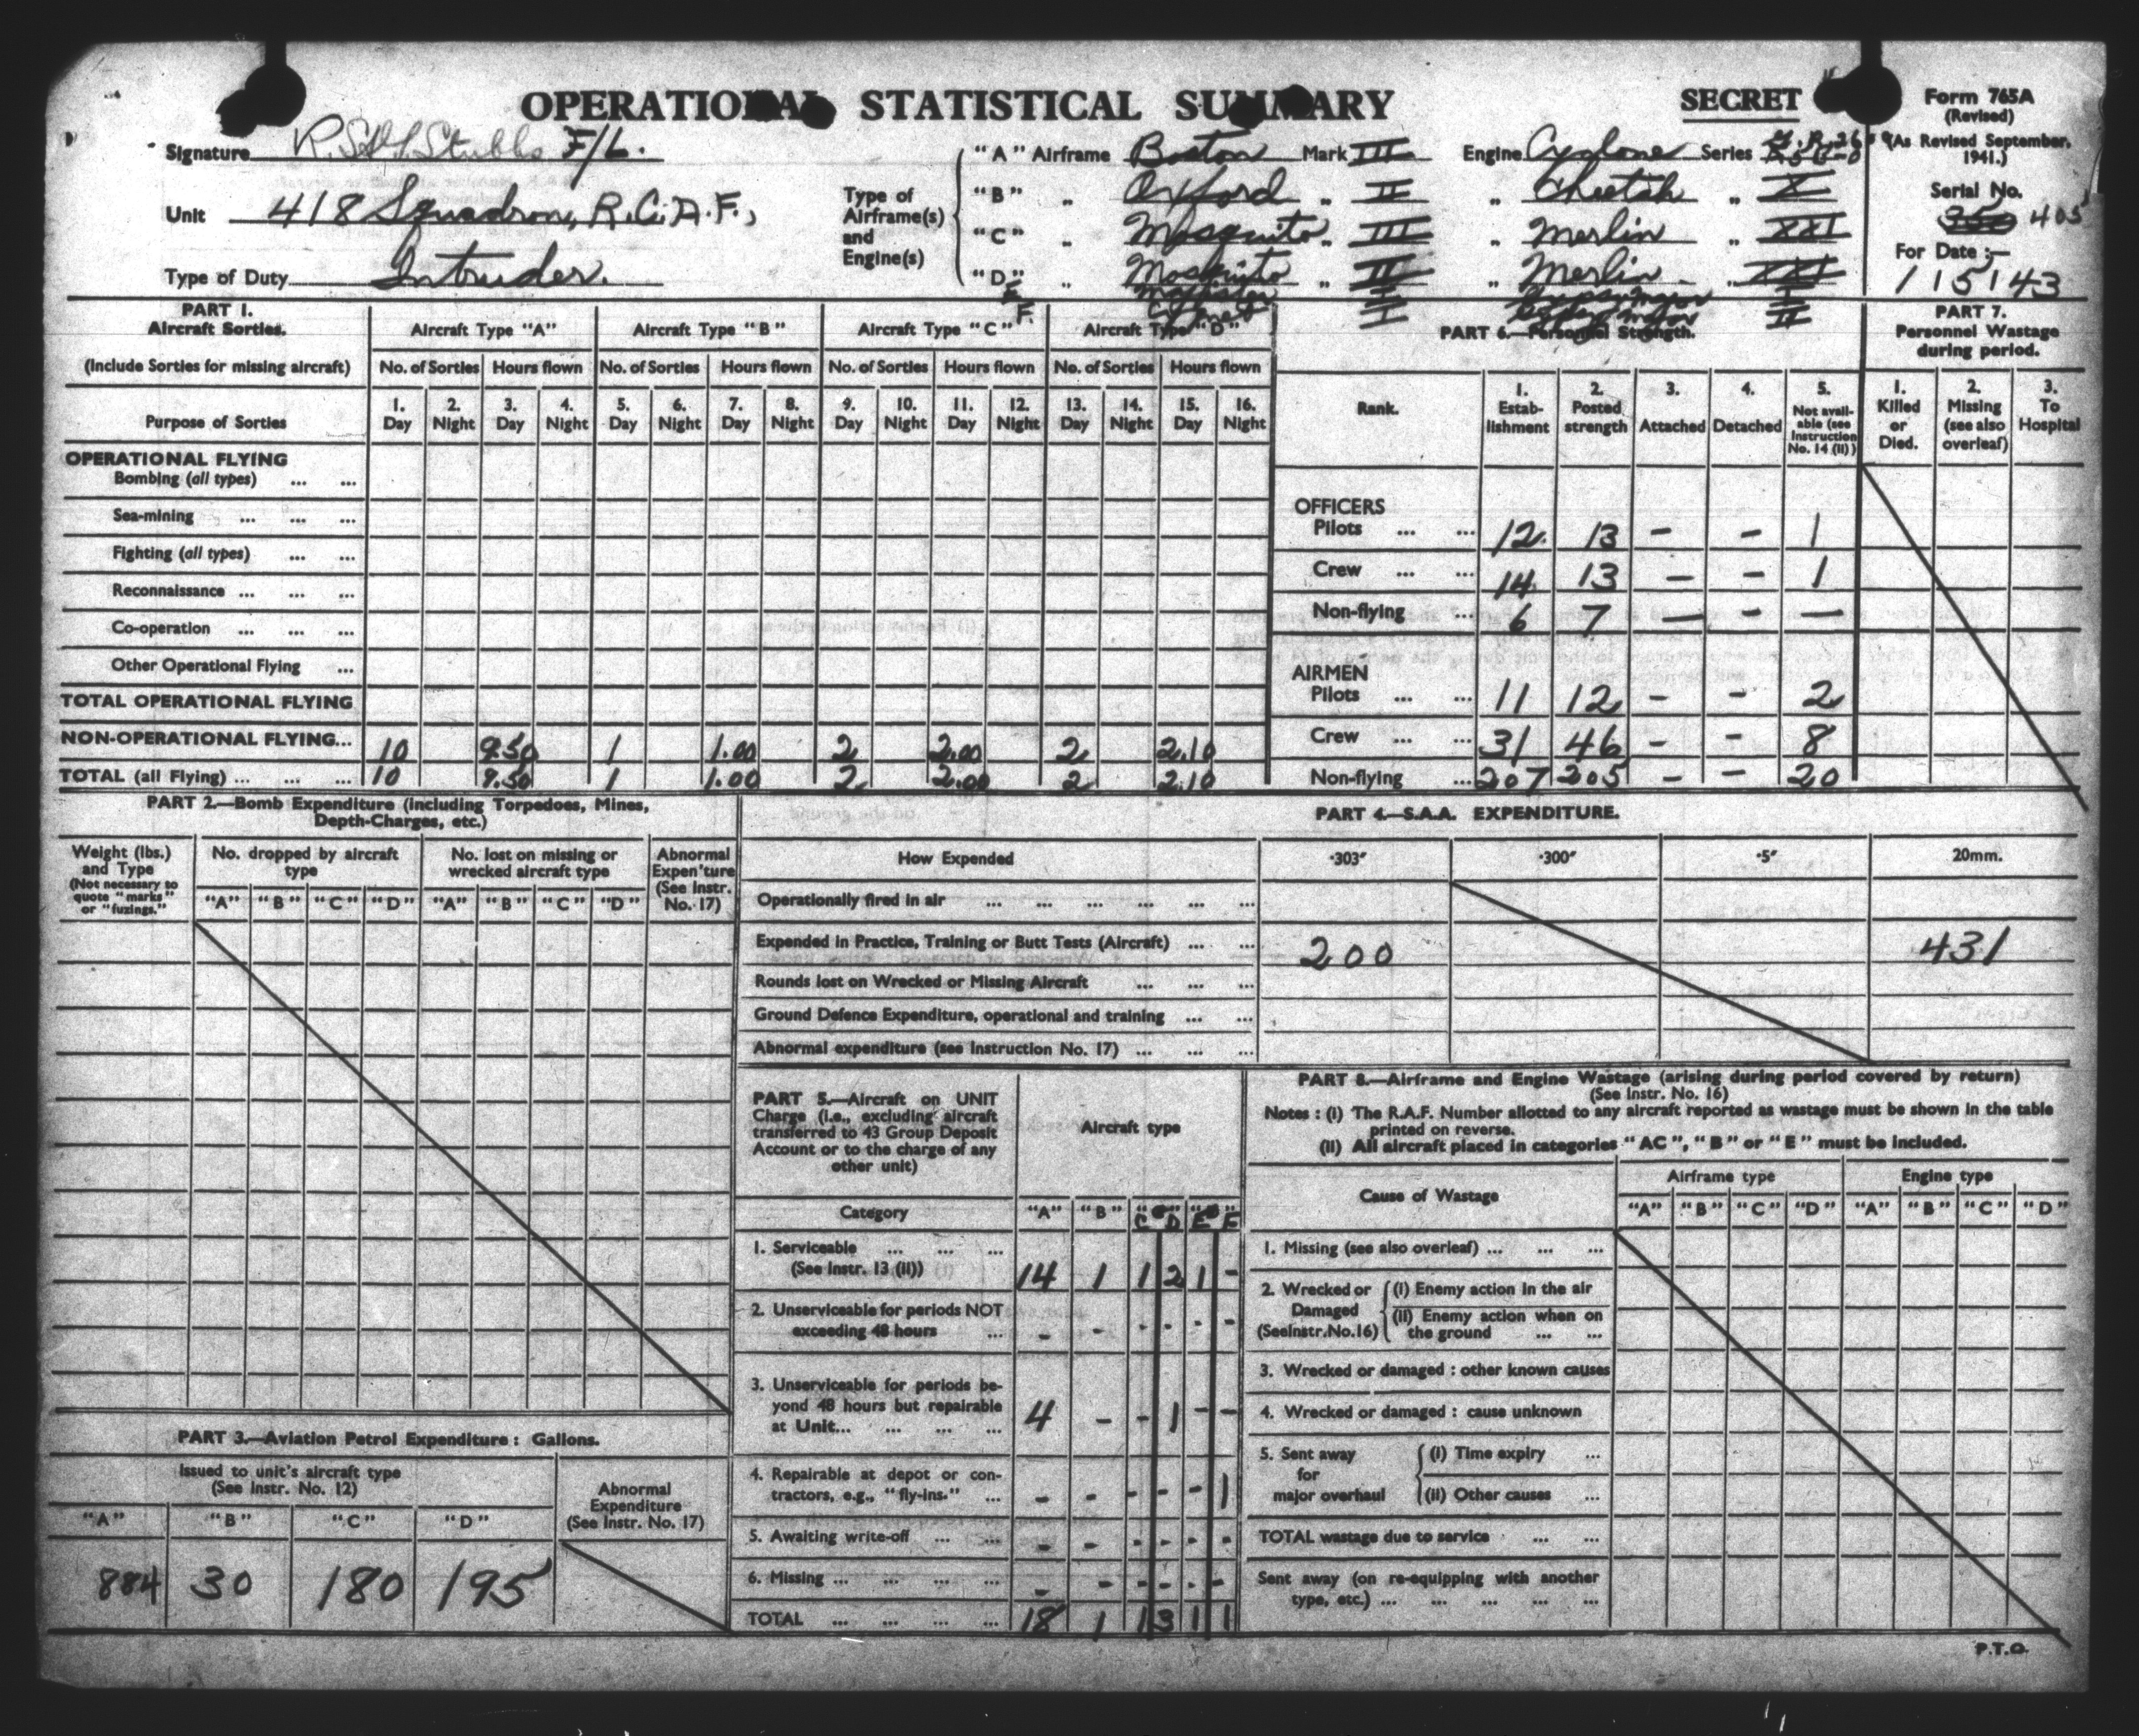 OPERATIONAL STATISTICAL SUMMARY
SECRET
Form 765A
(Revised)
(As Revised September, 1941.)
Signature Stubbs F/L.
Unit 418 Squadron, R.C.A.F.,
Type of Duty Intruder.
Type of Airframe(s) and Engine(s)
"A" Airframe Boston Mark III Engine Cyclone Series
"B" „ Oxford „ II „ Cheetah „ X
"C" „ Mosquito „ III „ Merlin „ XXI
"D" „ Mosquito „ II „ Merlin „ XXI
E I I
F I II
Serial No.
405
For Date :—
1/5/43
PART I.
Aircraft Sorties.
(Include Sorties for missing aircraft)
Aircraft Type "A" Aircraft Type "B" Aircraft Type "C" Aircraft Type "D"
No. of Sorties Hours flown No. of Sorties Hours flown No. of Sorties Hours flown No. of Sorties Hours flown
Purpose of Sorties
1. Day 2. Night 3. Day 4. Night 5. Day 6. Night 7. Day 8. Night 9. Day 10. Night 11. Day 12. Night 13. Day 14. Night 15. Day 16. Night
OPERATIONAL FLYING
Bombing (all types) ... ...
Sea-mining ... ... ...
Fighting (all types) ... ...
Reconnaissance ... ... ...
Co-operation ... ... ...
Other Operational Flying ...
TOTAL OPERATIONAL FLYING
NON-OPERATIONAL FLYING... 10 9.50 1 1.00 2 2.00 2 2.10
TOTAL (all Flying) ... ... ... 10 9.50 1 1.00 2 2.00 2 2.10
PART 6.—Personnel Strength.
Rank.
1. Estab-lishment
2. Posted strength
3. Attached
4. Detached
5. Not avail-able (see Instruction No. 14 (ii))
OFFICERS
Pilots ... ... 12 13 – – 1
Crew ... ... 14 13 – – 1
Non-flying ... 6 7 – – –
AIRMEN
Pilots ... ... 11 12 – – 2
Crew ... ... 31 46 – – 8
Non-flying ... 207 205 – – 20
PART 7.
Personnel Wastage during period.
1. Killed or Died.
2. Missing (see also overleaf)
3. To Hospital
PART 2.—Bomb Expenditure (including Torpedoes, Mines,
Depth-Charges, etc.)
Weight (lbs.) and Type
(Not necessary to quote "marks" or "fuzings.")
No. dropped by aircraft type
No. lost on missing or wrecked aircraft type
Abnormal Expen'ture (See Instr. No. 17)
"A" "B" "C" "D" "A" "B" "C" "D"
PART 4.—S.A.A. EXPENDITURE.
How Expended ·303″ ·300″ ·5″ 20mm.
Operationally fired in air ... ... ... ... ... ...
Expended in Practice, Training or Butt Tests (Aircraft) ... ... 200 431
Rounds lost on Wrecked or Missing Aircraft ... ... ...
Ground Defence Expenditure, operational and training ... ...
Abnormal expenditure (see Instruction No. 17) ... ... ...
PART 3.—Aviation Petrol Expenditure : Gallons.
Issued to unit's aircraft type
(See Instr. No. 12)
Abnormal Expenditure (See Instr. No. 17)
"A" "B" "C" "D"
884 30 180 195
PART 5.—Aircraft on UNIT
Charge (i.e., excluding aircraft
transferred to 43 Group Deposit
Account or to the charge of any
other unit)
Aircraft type
Category "A" "B" C D E F
1. Serviceable ... ... ...
(See Instr. 13 (ii)) 14 1 1 2 1 -
2. Unserviceable for periods NOT
exceeding 48 hours ... - - - - - -
3. Unserviceable for periods be-
yond 48 hours but repairable
at Unit... ... ... ... 4 - - 1 - -
4. Repairable at depot or con-
tractors, e.g., "fly-ins." ... - - - - - 1
5. Awaiting write-off ... ... - - - - - -
6. Missing ... ... ... ... - - - - - -
TOTAL ... ... ... ... 18 1 1 3 1 1
PART 8.—Airframe and Engine Wastage (arising during period covered by return)
(See Instr. No. 16)
Notes : (i) The R.A.F. Number allotted to any aircraft reported as wastage must be shown in the table
printed on reverse.
(ii) All aircraft placed in categories "AC", "B" or "E" must be included.
Cause of Wastage
Airframe type Engine type
"A" "B" "C" "D" "A" "B" "C" "D"
1. Missing (see also overleaf) ... ... ...
2. Wrecked or Damaged (See Instr. No. 16)
(i) Enemy action in the air
(ii) Enemy action when on the ground ... ...
3. Wrecked or damaged : other known causes
4. Wrecked or damaged : cause unknown
5. Sent away for major overhaul
(i) Time expiry ...
(ii) Other causes ...
TOTAL wastage due to service ... ...
Sent away (on re-equipping with another
type, etc.) ... ... ... ... ...
P.T.O.